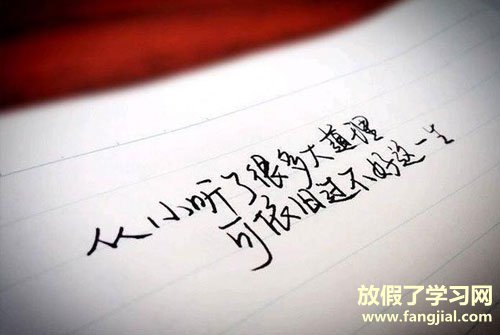 从小听了很多大道理
可依旧过不好这一生
放假了学习网
www.fangjial.com